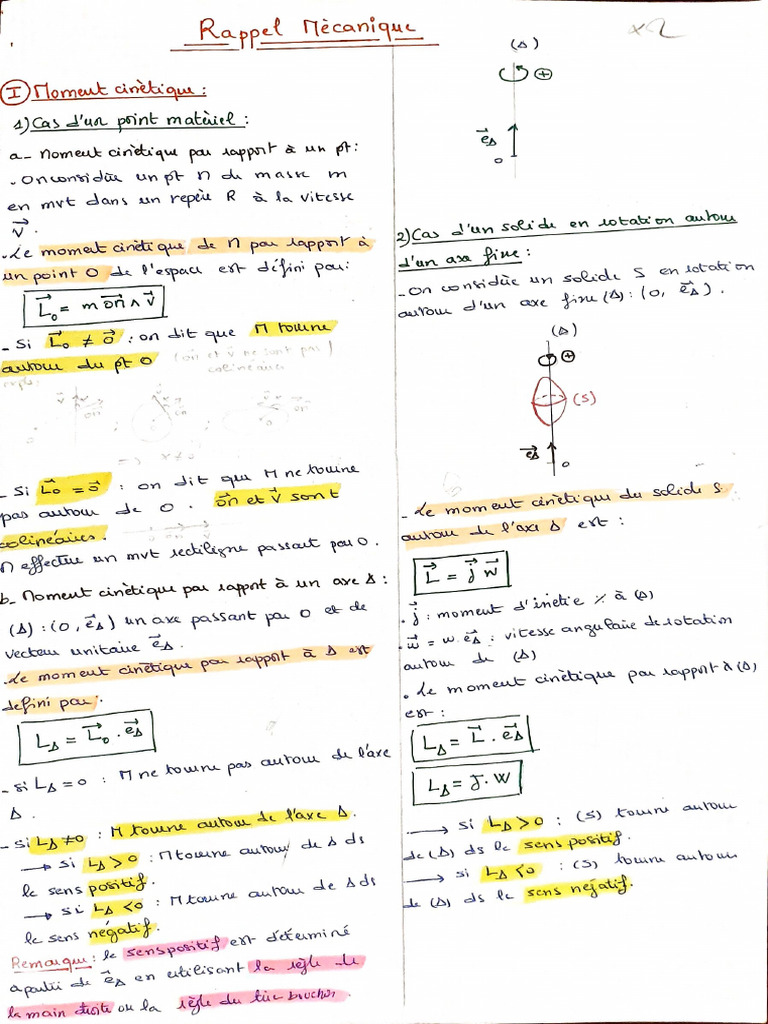 Rappel Mècanique
x2
I Moment cinètique :
1) Cas d'un point matèriel :
a_ Moment cinètique par rapport à un pt :
. On considère un pt M de masse m
en mvt dans un repère R à la vitesse
v⃗.
. Le moment cinètique de M par rapport à
un point O de l'espace est dèfini par :
L⃗₀ = m OM⃗ ∧ v⃗
_ Si L⃗₀ ≠ 0⃗ : on dit que M tourne
autour du pt O (OM et v⃗ ne sont pas)
colinéaires
_ Si L⃗₀ = 0⃗ : on dit que M ne tourne
pas autour de O. OM⃗ et V⃗ sont
colinèaires.
M effectue un mvt rectiligne passant par O.
b_ Moment cinètique par rapport à un axe Δ :
(Δ) : (O, e⃗Δ) un axe passant par O et de
vecteur unitaire e⃗Δ.
. Le moment cinètique par rapport à Δ est
defini par :
LΔ = L⃗₀ . e⃗Δ
_ Si LΔ = 0 : M ne tourne pas autour de l'axe
Δ.
_ Si LΔ ≠ 0 : M tourne autour de l'axe Δ.
→ Si LΔ > 0 : M tourne autour de Δ ds
le sens positif.
→ Si LΔ < 0 : M tourne autour de Δ ds
le sens nègatif.
Remarque : le sens positif est dèterminè
à partir de e⃗Δ en utilisant la règle de
la main droite ou la règle du tire bouchon.
(Δ)
+
e⃗Δ
O
2) Cas d'un solide en rotation autour
d'un axe fixe :
_ On considère un solide S en rotation
autour d'un axe fixe (Δ) : (O, e⃗Δ).
(Δ)
+
(S)
e⃗Δ
O
_ Le moment cinètique du solide S
autour de l'axe Δ est :
L⃗ = j⃗ w⃗
. j⃗ : moment d'inètie % à (Δ)
. w⃗ = w. e⃗Δ : vitesse angulaire de rotation
autour de (Δ)
. Le moment cinètique par rapport à (Δ)
est :
LΔ = L⃗ . e⃗Δ
LΔ = J. W
→ Si LΔ > 0 : (S) tourne autour
de (Δ) ds le sens positif.
→ Si LΔ < 0 : (S) tourne autour
de (Δ) ds le sens nègatif.